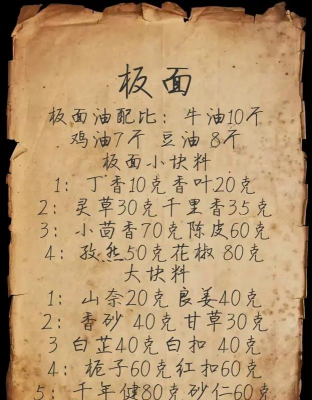 板面
板面油配比：牛油10斤
鸡油7斤 豆油 8斤
板面小块料
1：丁香10克香叶20克
2：灵草30克千里香35克
3：小茴香70克陈皮60克
4：孜然50克花椒 80克
大块料
1：山奈20克良姜40克
2：香砂 40克甘草30克
3 白芷40克白扣 40克
4：栀子60克红扣60克
5：千年健80克砂仁60克